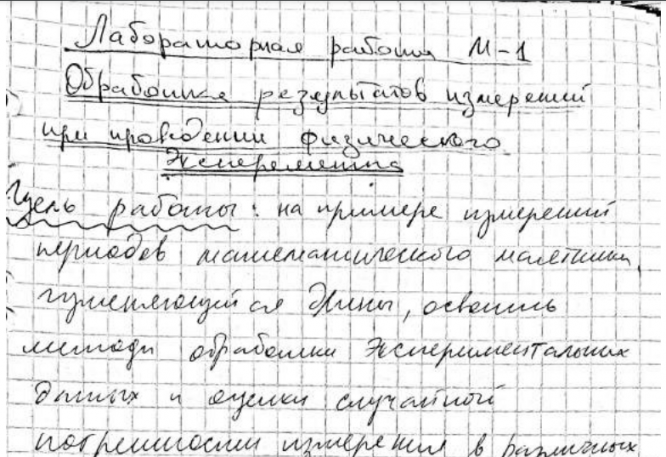 Лабораторная работа М-1
Обработка результатов измерений
при проведении физического
Эксперемента
Цель работы: на примере измерений
периодов математического маятника,
изменяющейся длины, освоить
методы обработки экспериментальных
данных и оценки случайной
погрешности измерения в различных